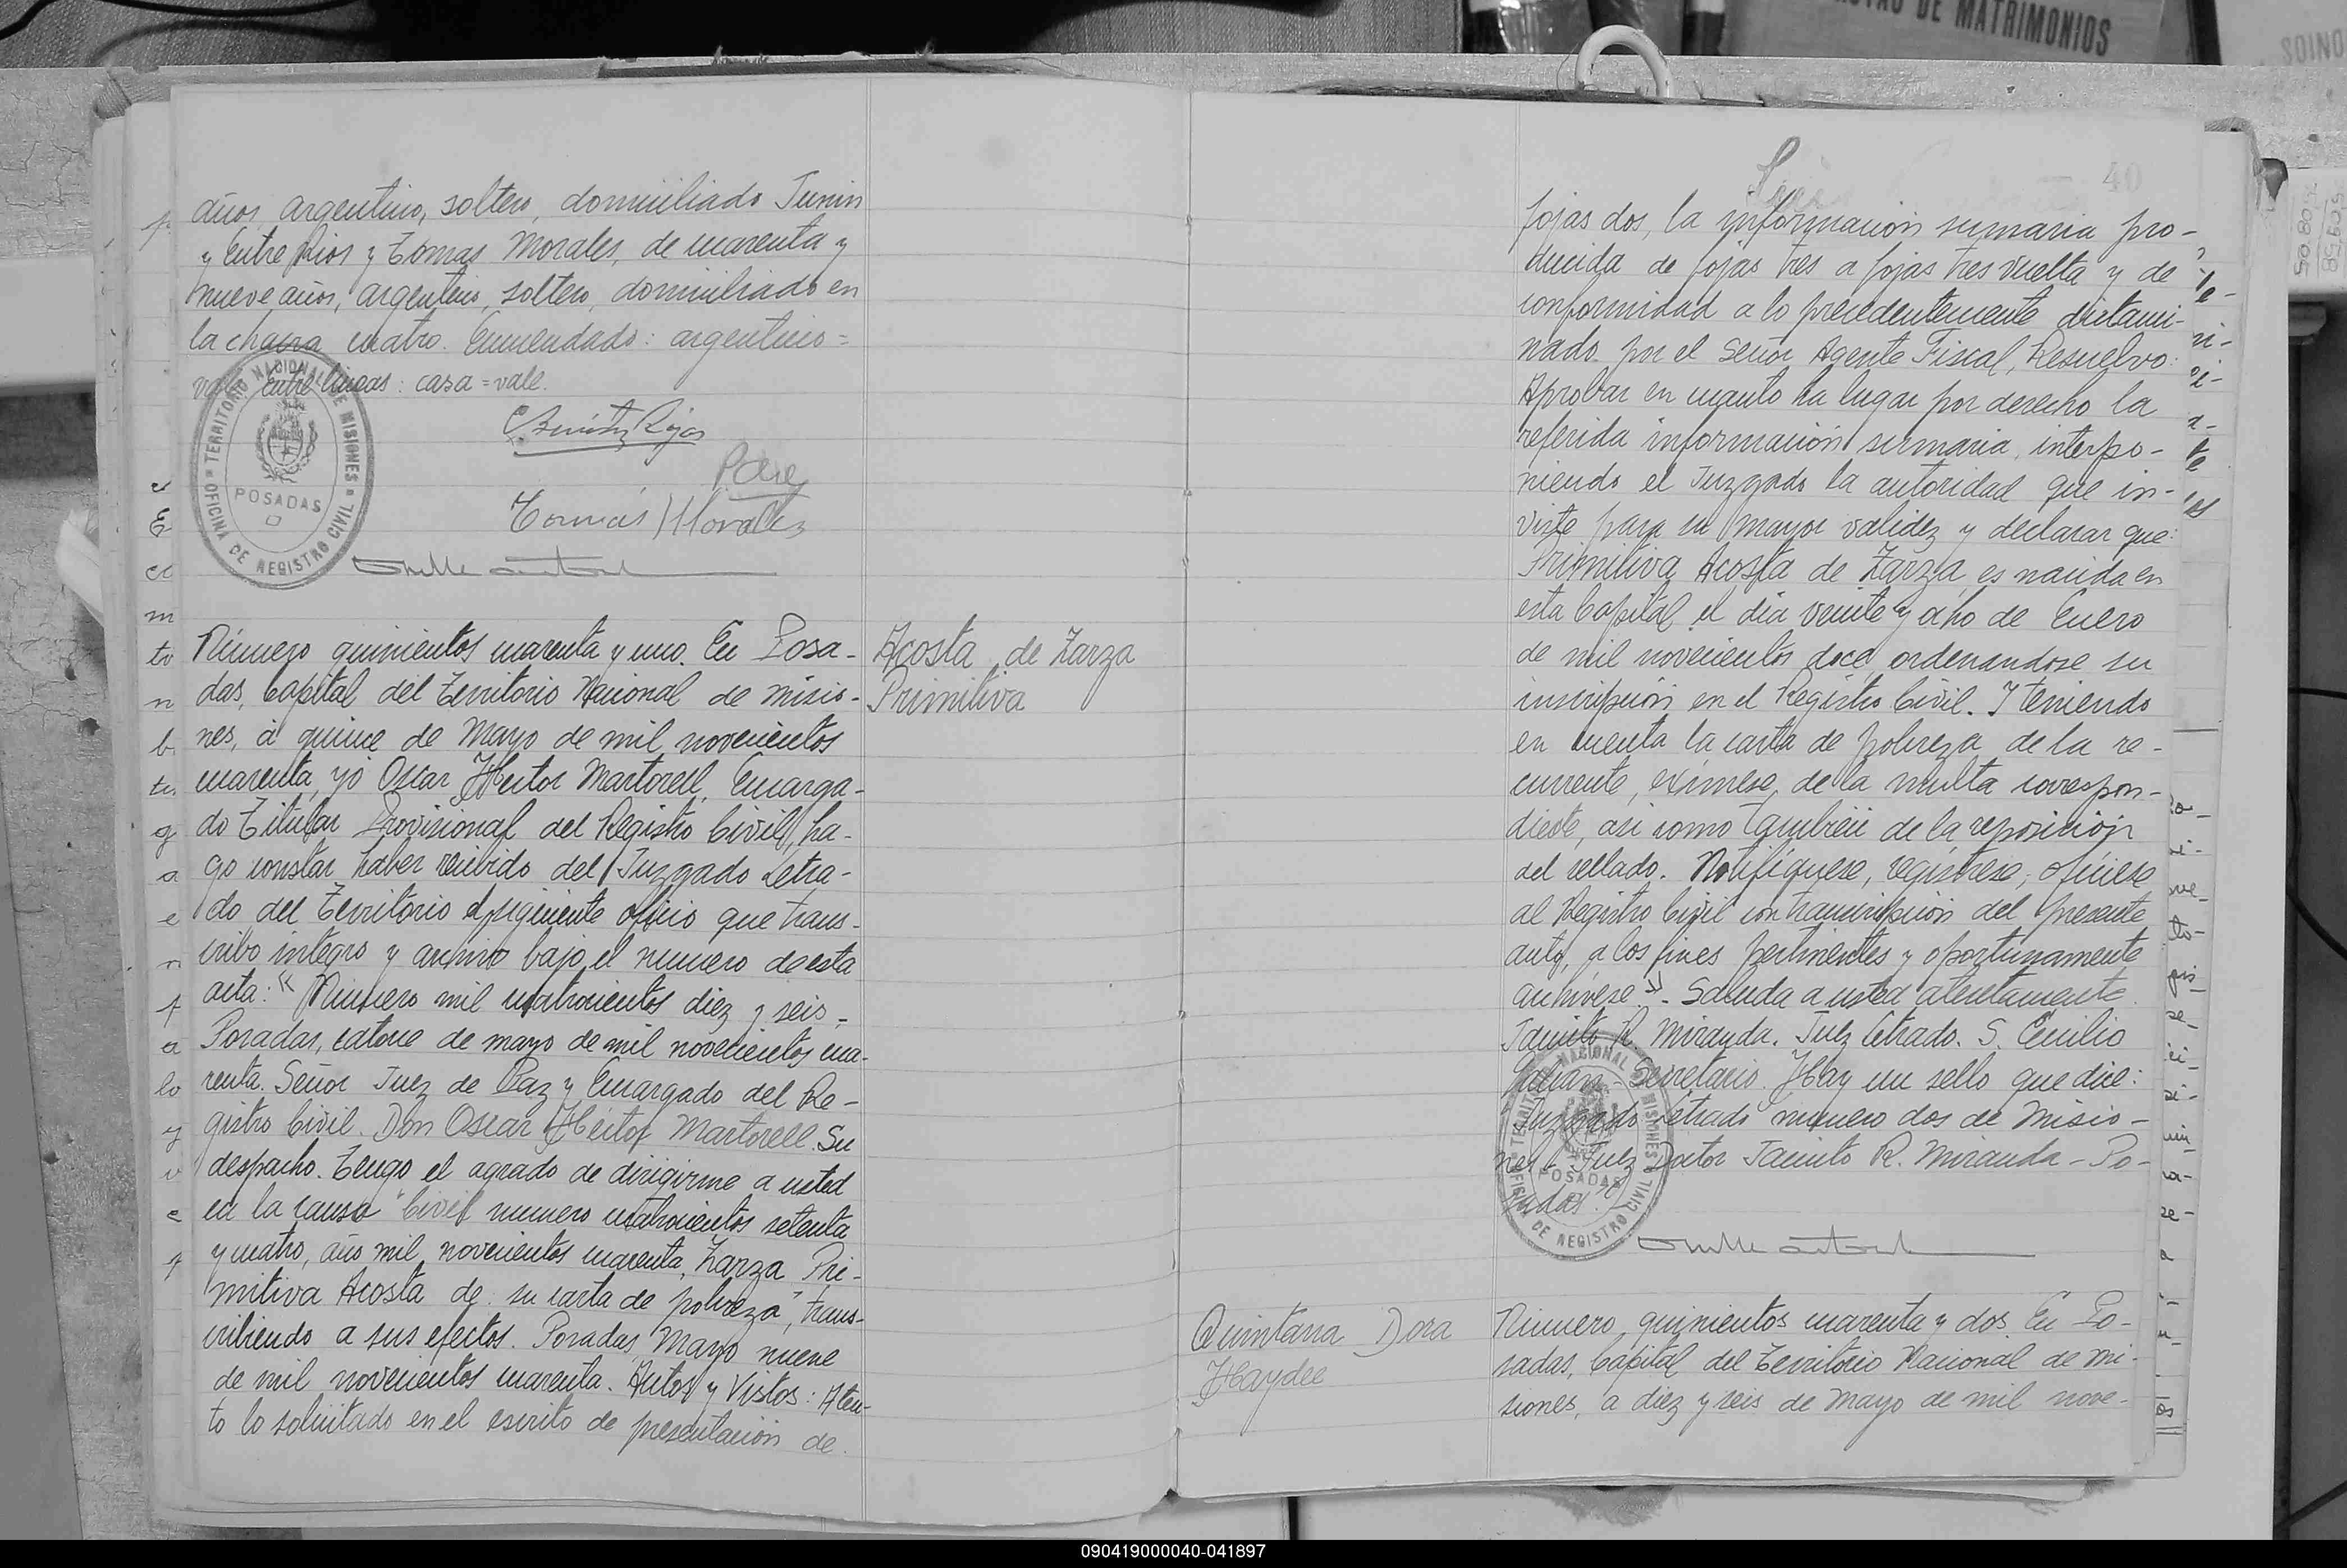 años, argentino, soltero, domiciliado Junin
y Entre Rios y Tomas Morales, de cuarenta y
nueve años, argentino, soltero, domiciliado en
la chacra cuatro. Enmendado: argentino=
vale. entre lineas: casa=vale.
Tomás Morales
TERRITORIO NACIONAL DE MISIONES
POSADAS
OFICINA DE REGISTRO CIVIL
Número quinientos cuarenta y uno. En Posa-
das, Capital del Territorio Nacional de Misio-
nes, a quince de Mayo de mil novecientos
cuarenta, yo Oscar Hector Martorell, Encarga-
do Titular Provisional del Registro Civil, ha-
go constar haber recibido del Juzgado Letra-
do del Territorio el siguiente oficio que trans-
cribo integro y archivo bajo el numero de esta
acta: "Numero mil cuatrocientos diez y seis.
Posadas, catorce de mayo de mil novecientos cua-
renta. Señor Juez de Paz y Encargado del Re-
gistro Civil. Don Oscar Hector Martorell. Su
despacho. Tengo el agrado de dirigirme a usted
en la causa "Civil numero cuatrocientos setenta
y cuatro, año mil novecientos cuarenta, Zarza Pri-
mitiva Acosta de su carta de pobreza", trans-
cribiendo a sus efectos. Posadas, Mayo nueve
de mil novecientos cuarenta. Autos y Vistos: Aten-
to lo solicitado en el escrito de presentación de
Acosta de Zarza
Primitiva
40
fojas dos, la información sumaria pro-
ducida de fojas tres a fojas tres vuelta y de
conformidad a lo precedentemente dictami-
nado por el Señor Agente Fiscal, Resuelvo:
Aprobar en cuanto ha lugar por derecho la
referida información sumaria, interpo-
niendo el Juzgado la autoridad que in-
viste para su mayor validez y declarar que:
Primitiva Acosta de Zarza, es nacida en
esta Capital el día veinte y ocho de Enero
de mil novecientos doce, ordenandose su
inscripción en el Registro Civil. Y teniendo
en cuenta la carta de pobreza de la re-
currente, exímese, de la multa correspon-
diente, asi como también de la reposición
del sellado. Notifíquese, regístrese, ofíciese
al Registro Civil con transcripción del presente
auto, a los fines pertinentes y oportunamente
archívese". Saluda a usted atentamente.
Jacinto R. Miranda. Juez Letrado. S. Emilio
Secretario. Hay un sello que dice:
Juzgado Letrado numero dos de Misio-
nes. Juez Doctor Jacinto R. Miranda - Po-
sadas."
TERRITORIO NACIONAL DE MISIONES
POSADAS
OFICINA DE REGISTRO CIVIL
Quintana Dora
Haydee
Número, quinientos cuarenta y dos. En Po-
sadas, Capital del Territorio Nacional de Mi-
siones, a diez y seis de Mayo de mil nove-
DE MATRIMONIOS
090419000040-041897